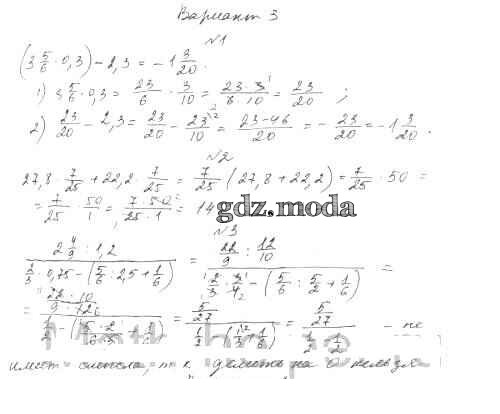 Вариант 3
№1
(3 5/6 · 0,3) - 2,3 = -1 3/20.
1) 3 5/6 · 0,3 = 23/6 · 3/10 = 23·3/6·10 = 23/20 ;
2) 23/20 - 2,3 = 23/20 - 23/10 = 23-46/20 = -23/20 = -1 3/20.
№2
27,8 · 7/25 + 22,2 · 7/25 = 7/25 (27,8 + 22,2) = 7/25 · 50 =
= 7/25 · 50/1 = 7·50/25·1 = 14
gdz.moda
№3
2 4/9 : 1,2 / 2/3 · 0,75 - (5/6 : 2,5 + 1/6) = 22/9 : 12/10 / 2/3 · 3/4 - (5/6 : 5/2 + 1/6) =
= 22·10/9·12 / 1/2 - (5·2/6·5 + 1/6) = 5/27 / 1/2 - (1/3 + 1/6) = 5/27 / 1/2 - 1/2 - не
имеет смысла, т. к. делить на 0 нельзя